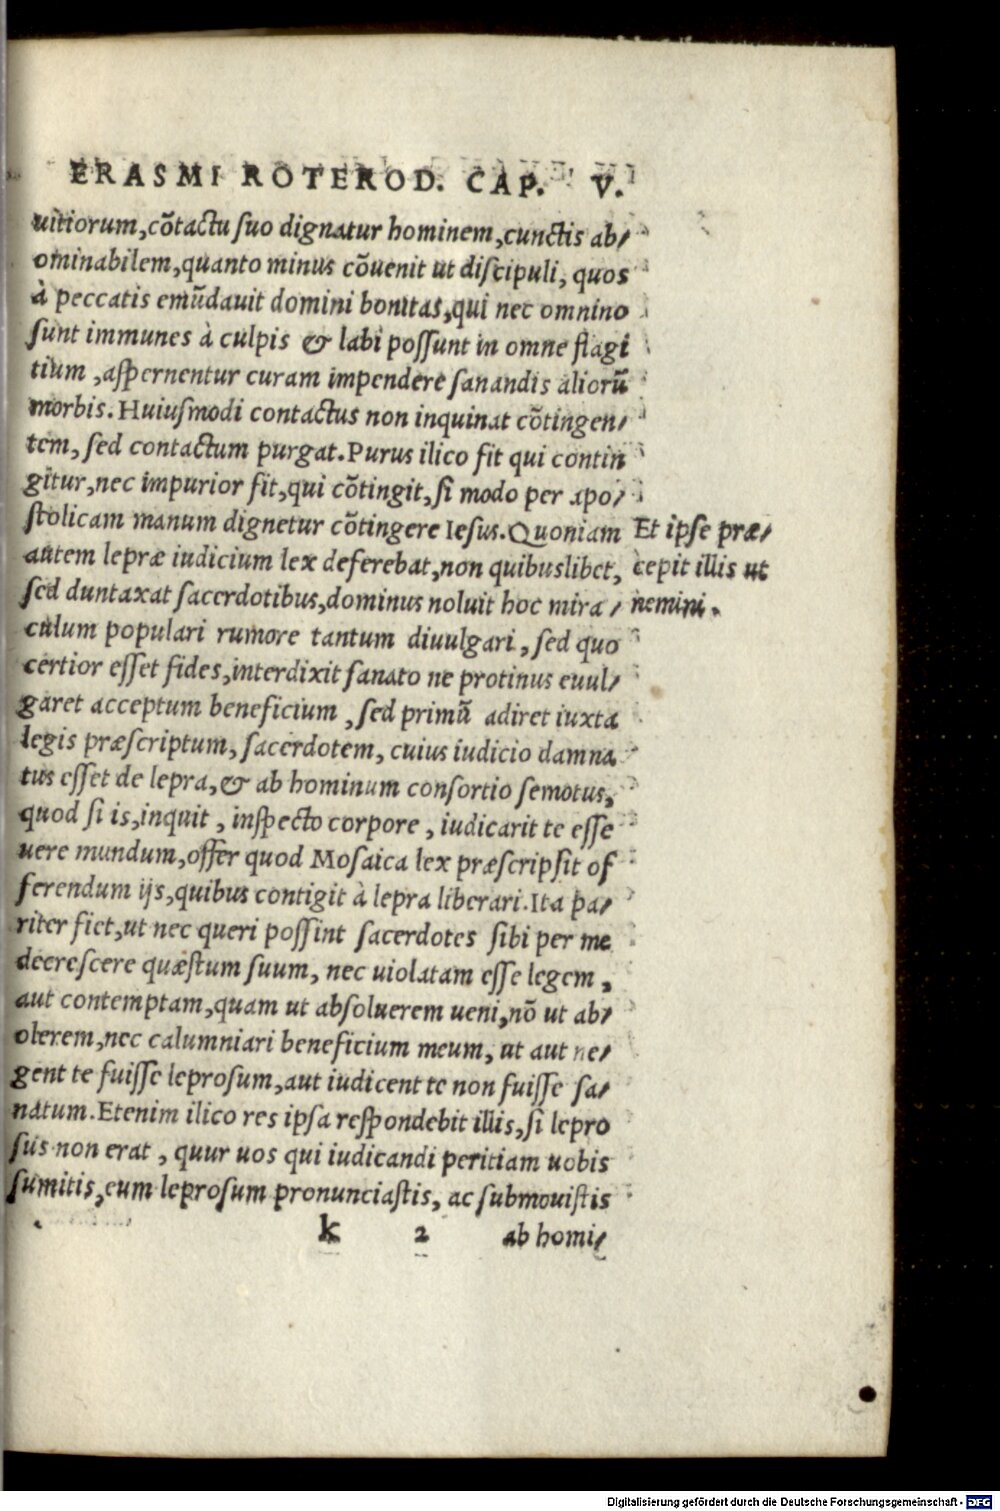 ERASMI ROTEROD. CAP. V.
uitiorum,cõtactu suo dignatur hominem,cunctis ab/
ominabilem,quanto minus cõuenit ut discipuli, quos
à peccatis emũdauit domini bonitas,qui nec omnino
sunt immunes à culpis & labi possunt in omne flagi
tium ,aspernentur curam impendere sanandis aliorũ
morbis. Huiusmodi contactus non inquinat cõtingen/
tem, sed contactum purgat. Purus ilico fit qui contin
gitur,nec impurior fit,qui cõtingit, si modo per apo/
stolicam manum dignetur cõtingere Iesus. Quoniam
autem lepræ iudicium lex deferebat,non quibuslibet,
sed duntaxat sacerdotibus,dominus noluit hoc mira/
culum populari rumore tantum diuulgari, sed quo
certior esset fides,interdixit sanato ne protinus euul/
garet acceptum beneficium , sed primũ adiret iuxta
legis præscriptum, sacerdotem, cuius iudicio damna
tus esset de lepra,& ab hominum consortio semotus,
quod si is,inquit , inspecto corpore , iudicarit te esse
uere mundum,offer quod Mosaica lex præscripsit of
ferendum ijs,quibus contigit à lepra liberari. Ita pa/
riter fiet,ut nec queri possint sacerdotes sibi per me
decrescere quæstum suum, nec uiolatam esse legem ,
aut contemptam,quam ut absoluerem ueni,nõ ut ab/
olerem,nec calumniari beneficium meum, ut aut ne/
gent te fuisse leprosum,aut iudicent te non fuisse sa/
natum. Etenim ilico res ipsa respondebit illis, si lepro
sus non erat , quur uos qui iudicandi peritiam uobis
sumitis, eum leprosum pronunciastis, ac submouistis
k 2 ab homi/
Et ipse præ/
cepit illis ut
nemini.
Digitalisierung gefördert durch die Deutsche Forschungsgemeinschaft - DFG